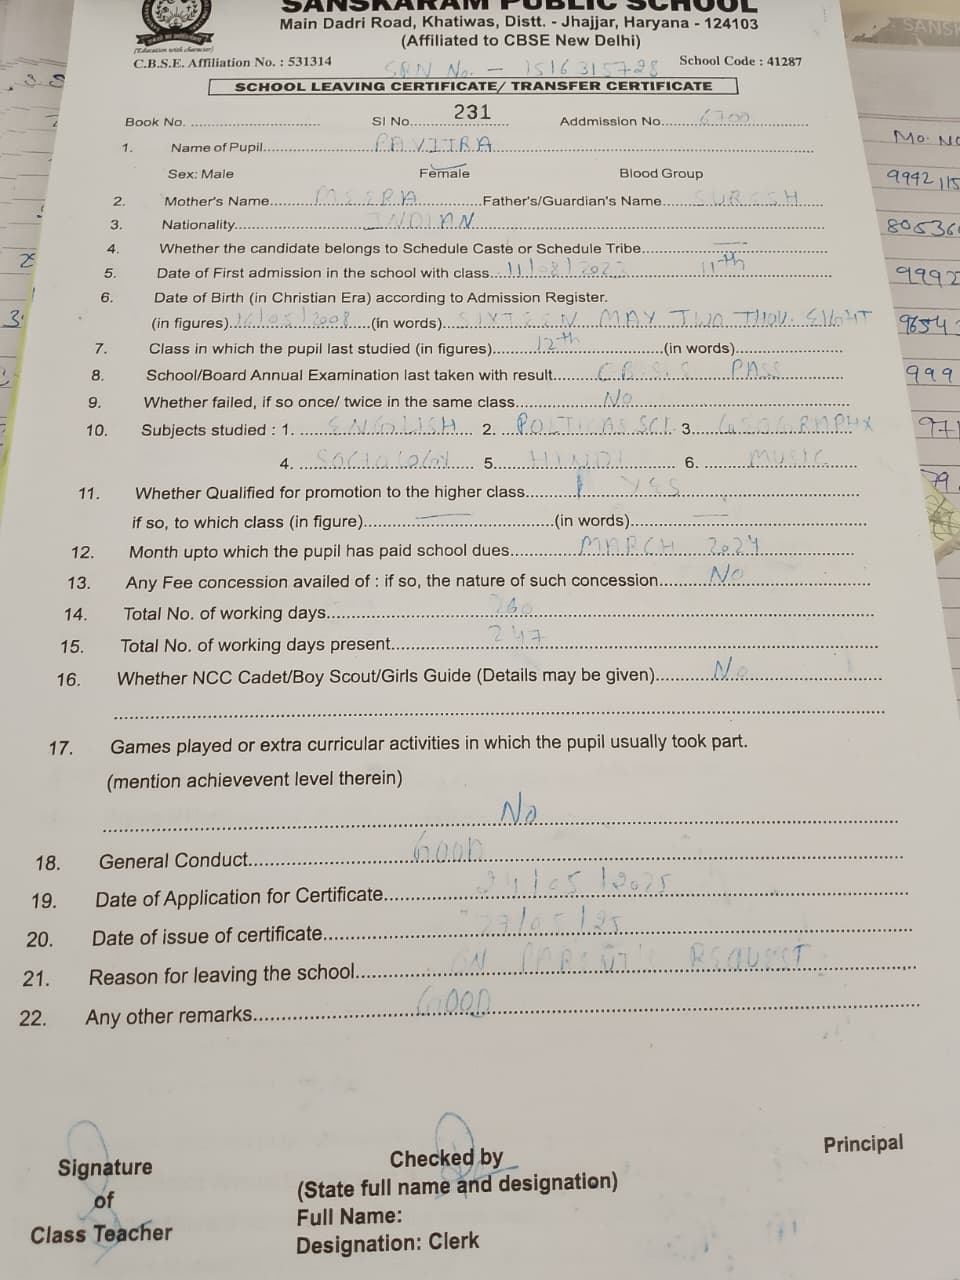 SANSKARAM PUBLIC SCHOOL
Main Dadri Road, Khatiwas, Distt. - Jhajjar, Haryana - 124103
(Affiliated to CBSE New Delhi)
(Education with character)
C.B.S.E. Affiliation No. : 531314 SRN No. - 1516315728 School Code : 41287
SCHOOL LEAVING CERTIFICATE/ TRANSFER CERTIFICATE
Book No. Sl No. 231 Addmission No. 6700
1. Name of Pupil PAVITRA
Sex: Male Female Blood Group
2. Mother's Name Father's/Guardian's Name SURESH
3. Nationality INDIAN
4. Whether the candidate belongs to Schedule Caste or Schedule Tribe —
5. Date of First admission in the school with class 11th
6. Date of Birth (in Christian Era) according to Admission Register.
(in figures) 16/05/2008 (in words) SIXTEEN MAY TWO THOU. EIGHT
7. Class in which the pupil last studied (in figures) 12th (in words)
8. School/Board Annual Examination last taken with result CBSE PASS
9. Whether failed, if so once/ twice in the same class No
10. Subjects studied : 1. ENGLISH 2. 3. GEOGRAPHY
4. 5. HINDI 6. MUSIC
11. Whether Qualified for promotion to the higher class YES
if so, to which class (in figure) — (in words) —
12. Month upto which the pupil has paid school dues MARCH
13. Any Fee concession availed of : if so, the nature of such concession No
14. Total No. of working days 260
15. Total No. of working days present 247
16. Whether NCC Cadet/Boy Scout/Girls Guide (Details may be given) No
17. Games played or extra curricular activities in which the pupil usually took part.
(mention achievevent level therein)
No
18. General Conduct GOOD
19. Date of Application for Certificate
20. Date of issue of certificate
21. Reason for leaving the school ON PARENT'S REQUEST
22. Any other remarks GOOD
Principal
Signature
of
Class Teacher
Checked by
(State full name and designation)
Full Name:
Designation: Clerk
SANSK
Mo. No